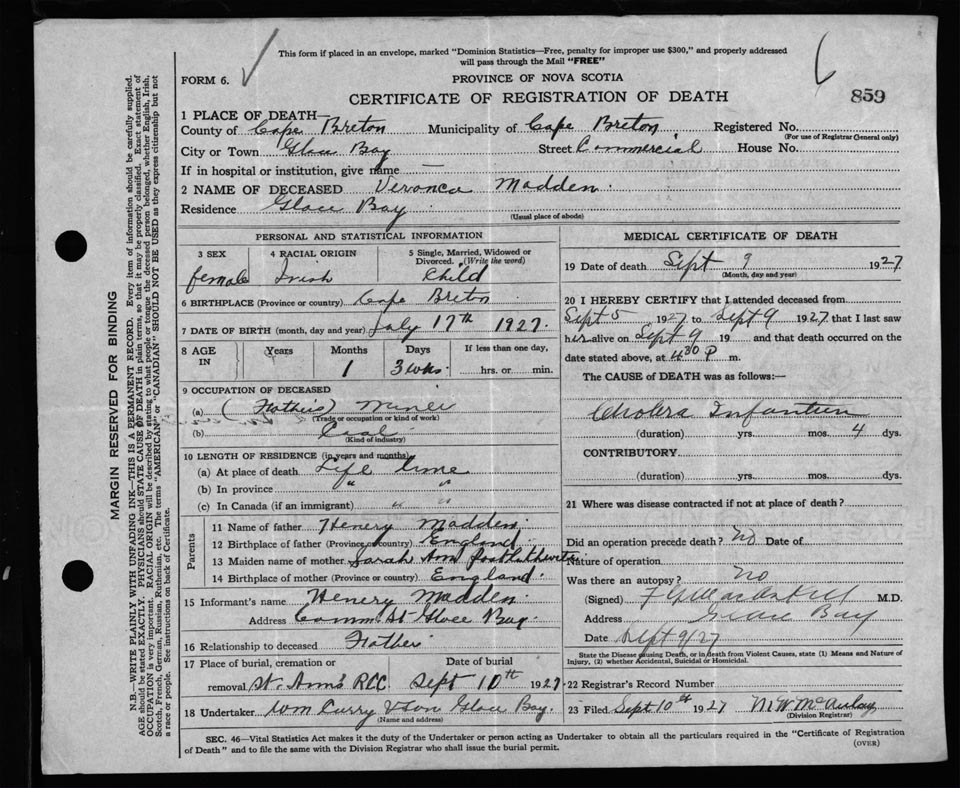 This form if placed in an envelope, marked "Dominion Statistics—Free, penalty for improper use $300," and properly addressed
will pass through the Mail "FREE"
FORM 6.
PROVINCE OF NOVA SCOTIA
CERTIFICATE OF REGISTRATION OF DEATH
859
1 PLACE OF DEATH—
County of Cape Breton Municipality of Cape Breton Registered No.
(For use of Registrar General only)
City or Town Glace Bay Street Commercial House No.
If in hospital or institution, give name —
2 NAME OF DECEASED Veronca Madden
Residence Glace Bay
(Usual place of abode)
PERSONAL AND STATISTICAL INFORMATION
3 SEX 4 RACIAL ORIGIN 5 Single, Married, Widowed or Divorced. (Write the word)
female Irish Child
6 BIRTHPLACE (Province or country) Cape Breton
7 DATE OF BIRTH (month, day and year) July 17th 1927.
8 AGE IN Years Months Days If less than one day,
1 3 wks. hrs. or min.
9 OCCUPATION OF DECEASED
(a) (Fathers) Miner
(Trade or occupation or kind of work)
(b) Coal
(Kind of industry)
10 LENGTH OF RESIDENCE (in years and months)
(a) At place of death Life time
(b) In province " "
(c) In Canada (if an immigrant) " "
Parents
11 Name of father Henery Madden
12 Birthplace of father (Province or country) England
13 Maiden name of mother Sarah Ann
14 Birthplace of mother (Province or country) England
15 Informant's name Henery Madden
Address Comm St Glace Bay
16 Relationship to deceased Father
17 Place of burial, cremation or Date of burial
removal St. Ann's RCC. Sept 10th 1927
18 Undertaker Wm Curry & Son Glace Bay.
(Name and address)
MEDICAL CERTIFICATE OF DEATH
19 Date of death Sept 9 1927
(Month, day and year)
20 I HEREBY CERTIFY that I attended deceased from
Sept 5 1927 to Sept 9 1927 that I last saw
her alive on Sept 9 19 and that death occurred on the
date stated above, at 4 30 P m.
The CAUSE of DEATH was as follows:—
Cholera Infantum
(duration) yrs. mos. 4 dys.
CONTRIBUTORY
(duration) yrs. mos. dys.
21 Where was disease contracted if not at place of death?
Did an operation precede death? No Date of
Nature of operation
Was there an autopsy? no
(Signed) M.D.
Address Glace Bay
Date Sept 9/27
State the Disease causing Death, or in death from Violent Causes, state (1) Means and Nature of
Injury, (2) whether Accidental, Suicidal or Homicidal.
22 Registrar's Record Number
23 Filed Sept 10th 1927 McAulay
(Division Registrar)
SEC. 46—Vital Statistics Act makes it the duty of the Undertaker or person acting as Undertaker to obtain all the particulars required in the "Certificate of Registration
of Death" and to file the same with the Division Registrar who shall issue the burial permit.
(OVER)
MARGIN RESERVED FOR BINDING
N.B.—WRITE PLAINLY WITH UNFADING INK—THIS IS A PERMANENT RECORD. Every item of information should be carefully supplied.
AGE should be stated EXACTLY. PHYSICIANS should STATE CAUSE OF DEATH in plain terms, so that it may be properly classified. Exact statement of
OCCUPATION is very important. RACIAL ORIGIN will be described by stating to what people or tongue the deceased person belonged, whether English, Irish,
Scotch, French, German, Russian, Ruthenian, etc. The terms "AMERICAN" or "CANADIAN" SHOULD NOT BE USED as they express citizenship but not
a race or people. See instructions on back of Certificate.